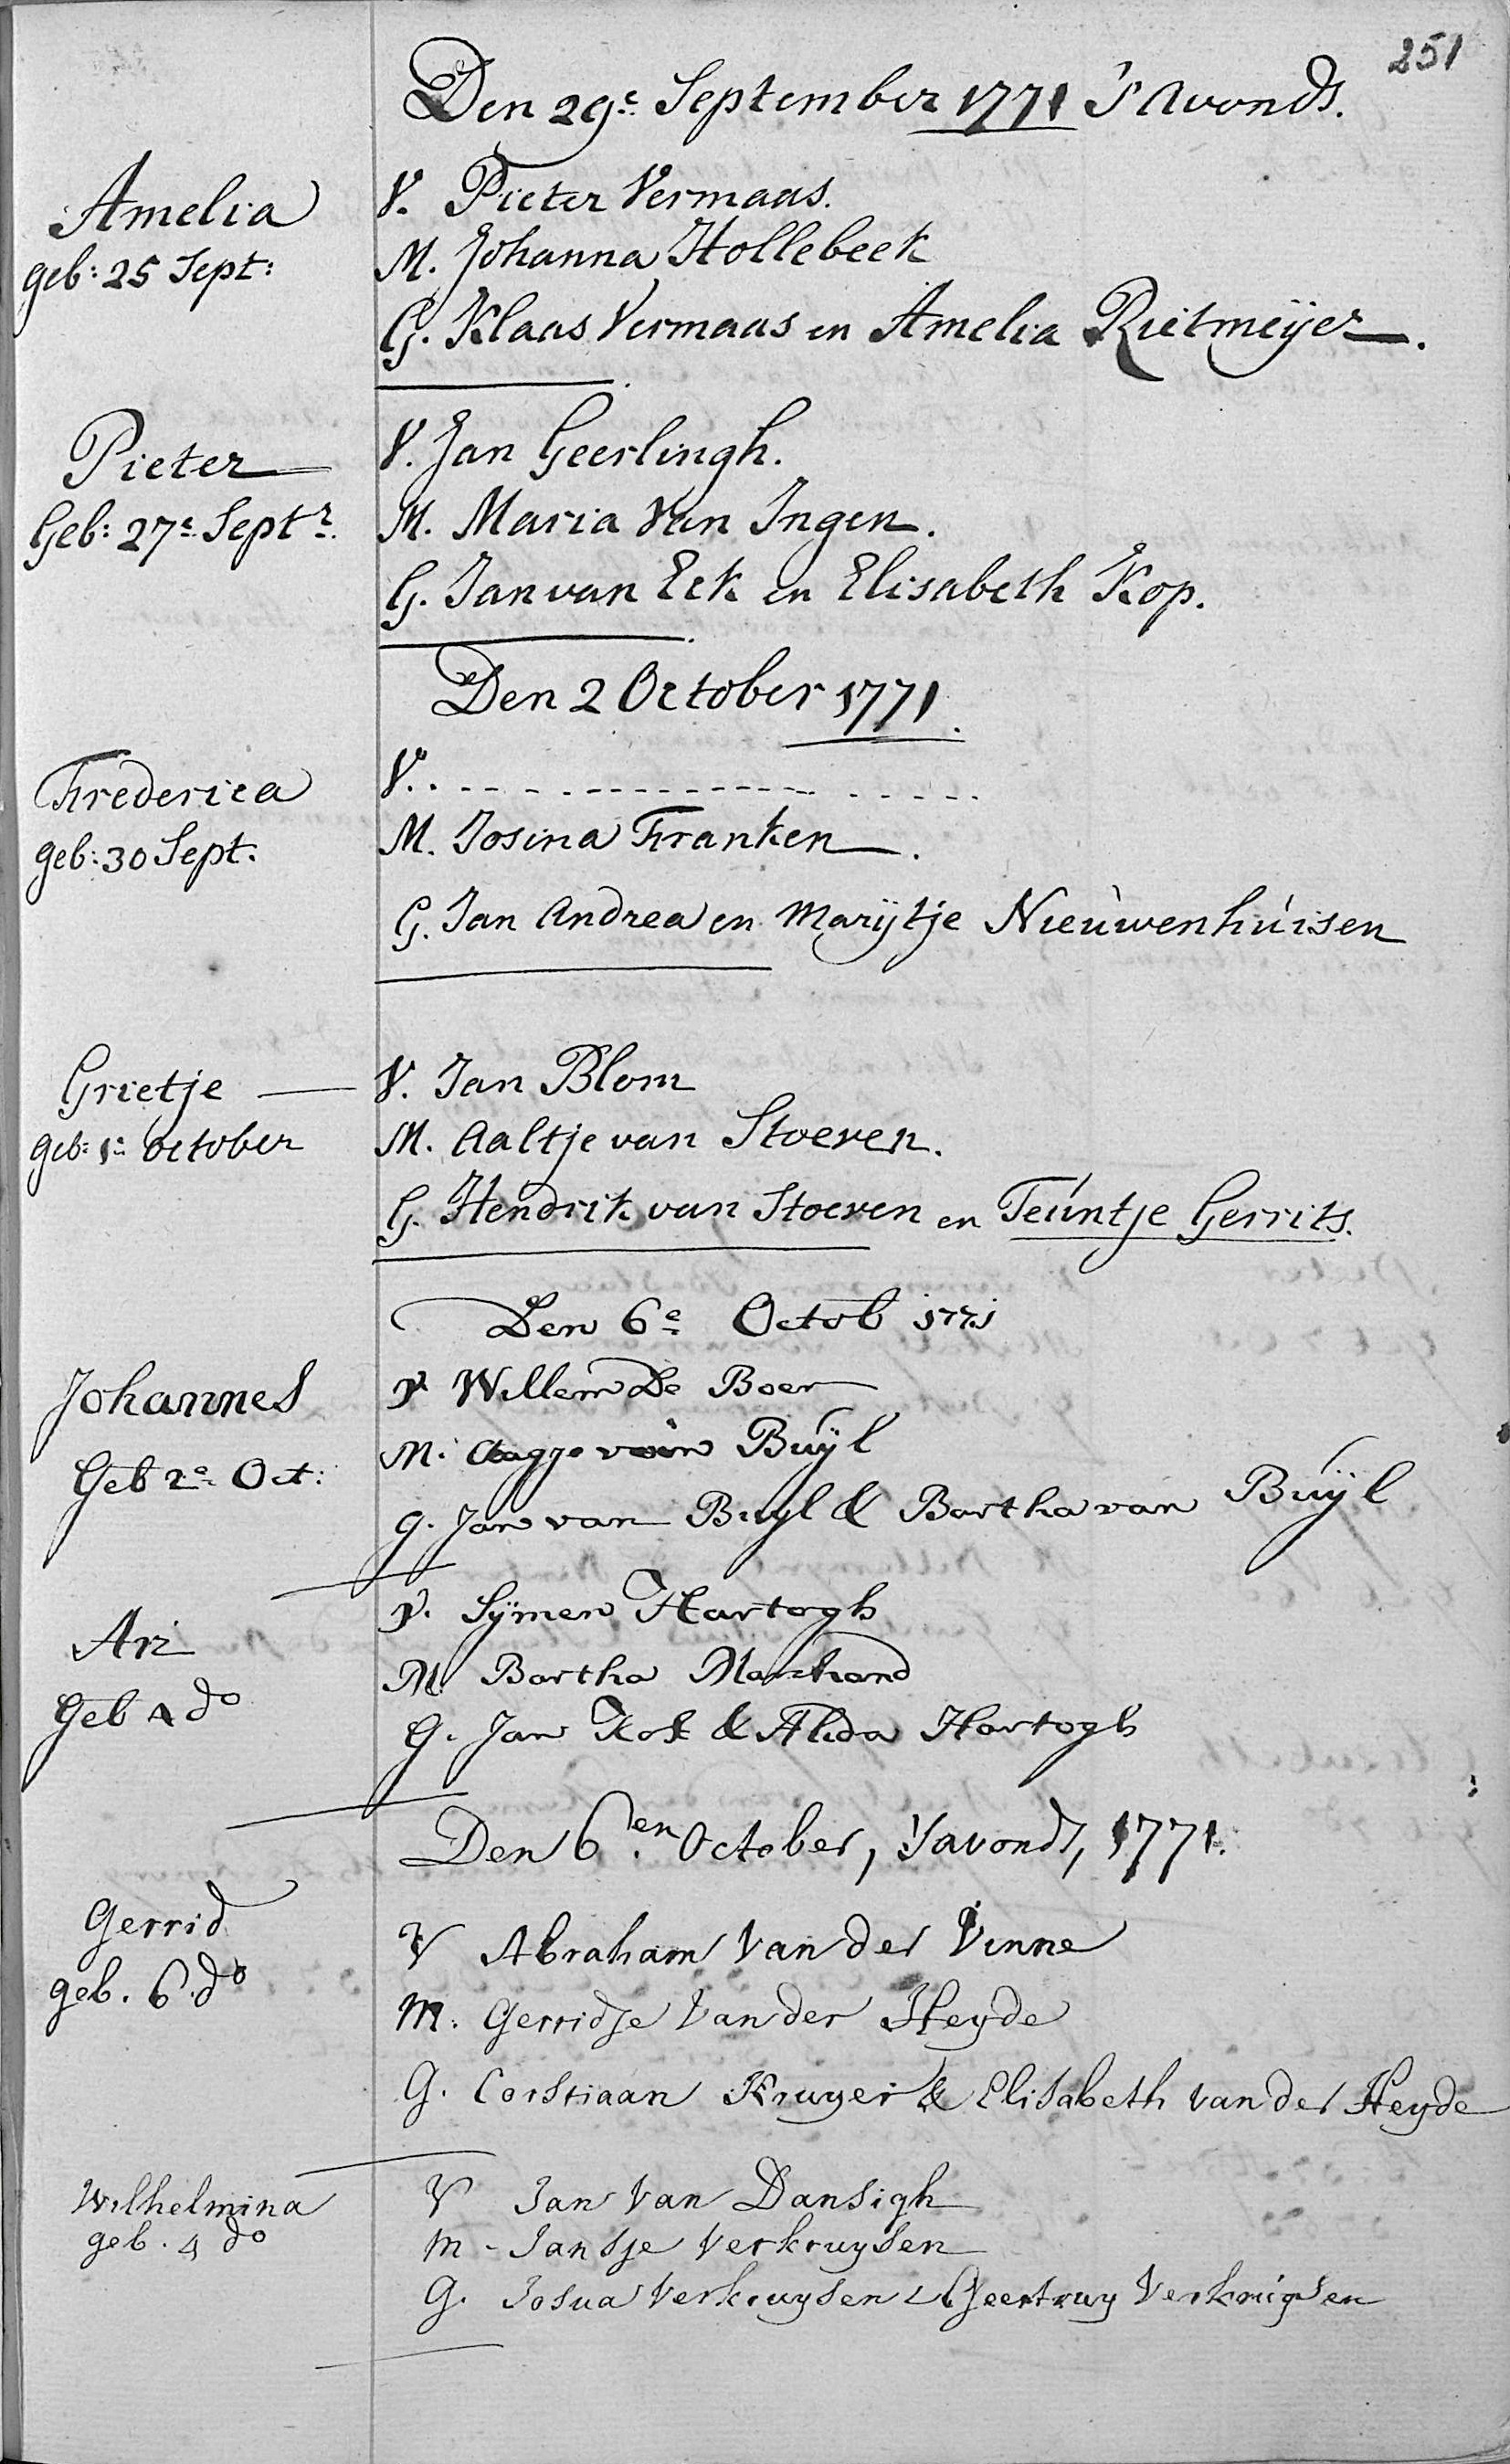 251
Den 29e September 1771 's Avonds.
Amelia
geb: 25 Sept:
V. Pieter Vermaas.
M. Johanna Hollebeek
G. Klaas Vermaas en Amelia Rietmeijer.
Pieter
Geb: 27e Septr.
V. Jan Geerlingh.
M. Maria Van Ingen.
G. Jan van Eck en Elisabeth Kop.
Den 2 October 1771.
Frederica
geb: 30 Sept.
V. . - - - - - - - - - - - - - - - - -
M. Josina Franken.
G. Jan Andrea en Marijtje Nieuwenhuisen
Grietje
geb: 1e October
V. Jan Blom
M. Aaltje van Stoeven.
G. Hendrik van Stoeven en Teuntje Gerrits.
Den 6e Octob 1771
Johannes
Geb 2e Oct:
V Willem De Boer
M. Aagje van Buÿl
G. Jan van Buyl & Bartha van Buÿl
Ari
Geb 4 do
V. Sÿmen Hartogh
M Bartha Marchand
G. Jan Kok & Alida Hartogh
Den 6en. October, 'Savonds, 1771.
Gerrid
geb. 6. do
V Abraham Van der Vinne
M. Gerridje Van der Heyde
G. Corstiaan Kruyer & Elisabeth van der Heyde
Wilhelmina
geb. 4 do
V Jan Van Dansigh
M - Jansje Verkruysen
G. Josua Verkruysen & Geertruy Verkruysen